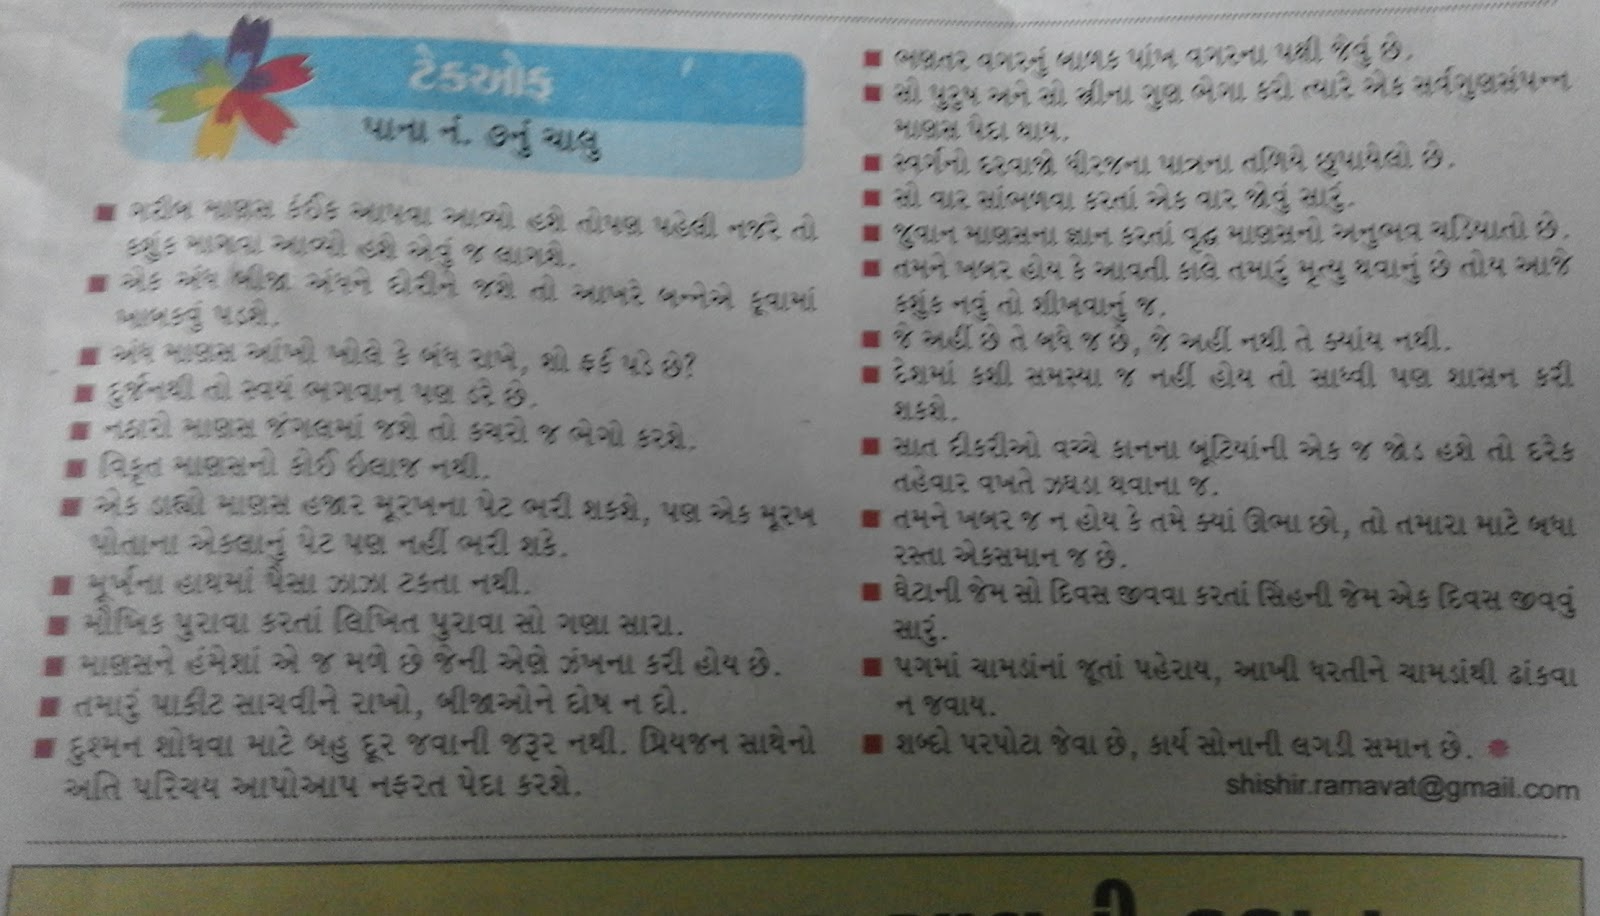 ટેકઓફ
પાના નં. ૭નું ચાલુ
■ ગરીબ માણસ કંઈક આપવા આવ્યો હશે તોપણ પહેલી નજરે તો
કશુંક માગવા આવ્યો હશે એવું જ લાગશે.
■ એક અંધ બીજા અંધને દોરીને જશે તો આખરે બન્નેએ કૂવામાં
ખાબકવું પડશે.
■ અંધ માણસ આંખો ખોલે કે બંધ રાખે, શો ફર્ક પડે છે?
■ દુર્જનથી તો સ્વયં ભગવાન પણ ડરે છે.
■ નઠારો માણસ જંગલમાં જશે તો કચરો જ ભેગો કરશે.
■ વિકૃત માણસનો કોઈ ઇલાજ નથી.
■ એક ડાહ્યો માણસ હજાર મૂરખના પેટ ભરી શકશે, પણ એક મૂરખ
પોતાના એકલાનું પેટ પણ નહીં ભરી શકે.
■ મૂર્ખના હાથમાં પૈસા ઝાઝા ટકતા નથી.
■ મૌખિક પુરાવા કરતાં લિખિત પુરાવા સો ગણા સારા.
■ માણસને હંમેશાં એ જ મળે છે જેની એણે ઝંખના કરી હોય છે.
■ તમારું પાકીટ સાચવીને રાખો, બીજાઓને દોષ ન દો.
■ દુશ્મન શોધવા માટે બહુ દૂર જવાની જરૂર નથી. પ્રિયજન સાથેનો
અતિ પરિચય આપોઆપ નફરત પેદા કરશે.
■ ભણતર વગરનું બાળક પાંખ વગરના પક્ષી જેવું છે.
■ સો પુરુષ અને સો સ્ત્રીના ગુણ ભેગા કરો ત્યારે એક સર્વગુણસંપન્ન
માણસ પેદા થાય.
■ સ્વર્ગનો દરવાજો ધીરજના પાત્રના તળિયે છુપાયેલો છે.
■ સો વાર સાંભળવા કરતાં એક વાર જોવું સારું.
■ જુવાન માણસના જ્ઞાન કરતાં વૃદ્ધ માણસનો અનુભવ ચડિયાતો છે.
■ તમને ખબર હોય કે આવતી કાલે તમારું મૃત્યુ થવાનું છે તોય આજે
કશુંક નવું તો શીખવાનું જ.
■ જે અહીં છે તે બધે જ છે, જે અહીં નથી તે ક્યાંય નથી.
■ દેશમાં કશી સમસ્યા જ નહીં હોય તો સાધ્વી પણ શાસન કરી
શકશે.
■ સાત દીકરીઓ વચ્ચે કાનના બૂટિયાંની એક જ જોડ હશે તો દરેક
તહેવાર વખતે ઝઘડા થવાના જ.
■ તમને ખબર જ ન હોય કે તમે ક્યાં ઊભા છો, તો તમારા માટે બધા
રસ્તા એકસમાન જ છે.
■ ઘેટાની જેમ સો દિવસ જીવવા કરતાં સિંહની જેમ એક દિવસ જીવવું
સારું.
■ પગમાં ચામડાંનાં જૂતાં પહેરાય, આખી ધરતીને ચામડાંથી ઢાંકવા
ન જવાય.
■ શબ્દો પરપોટા જેવા છે, કાર્ય સોનાની લગડી સમાન છે.
shishir.ramavat@gmail.com